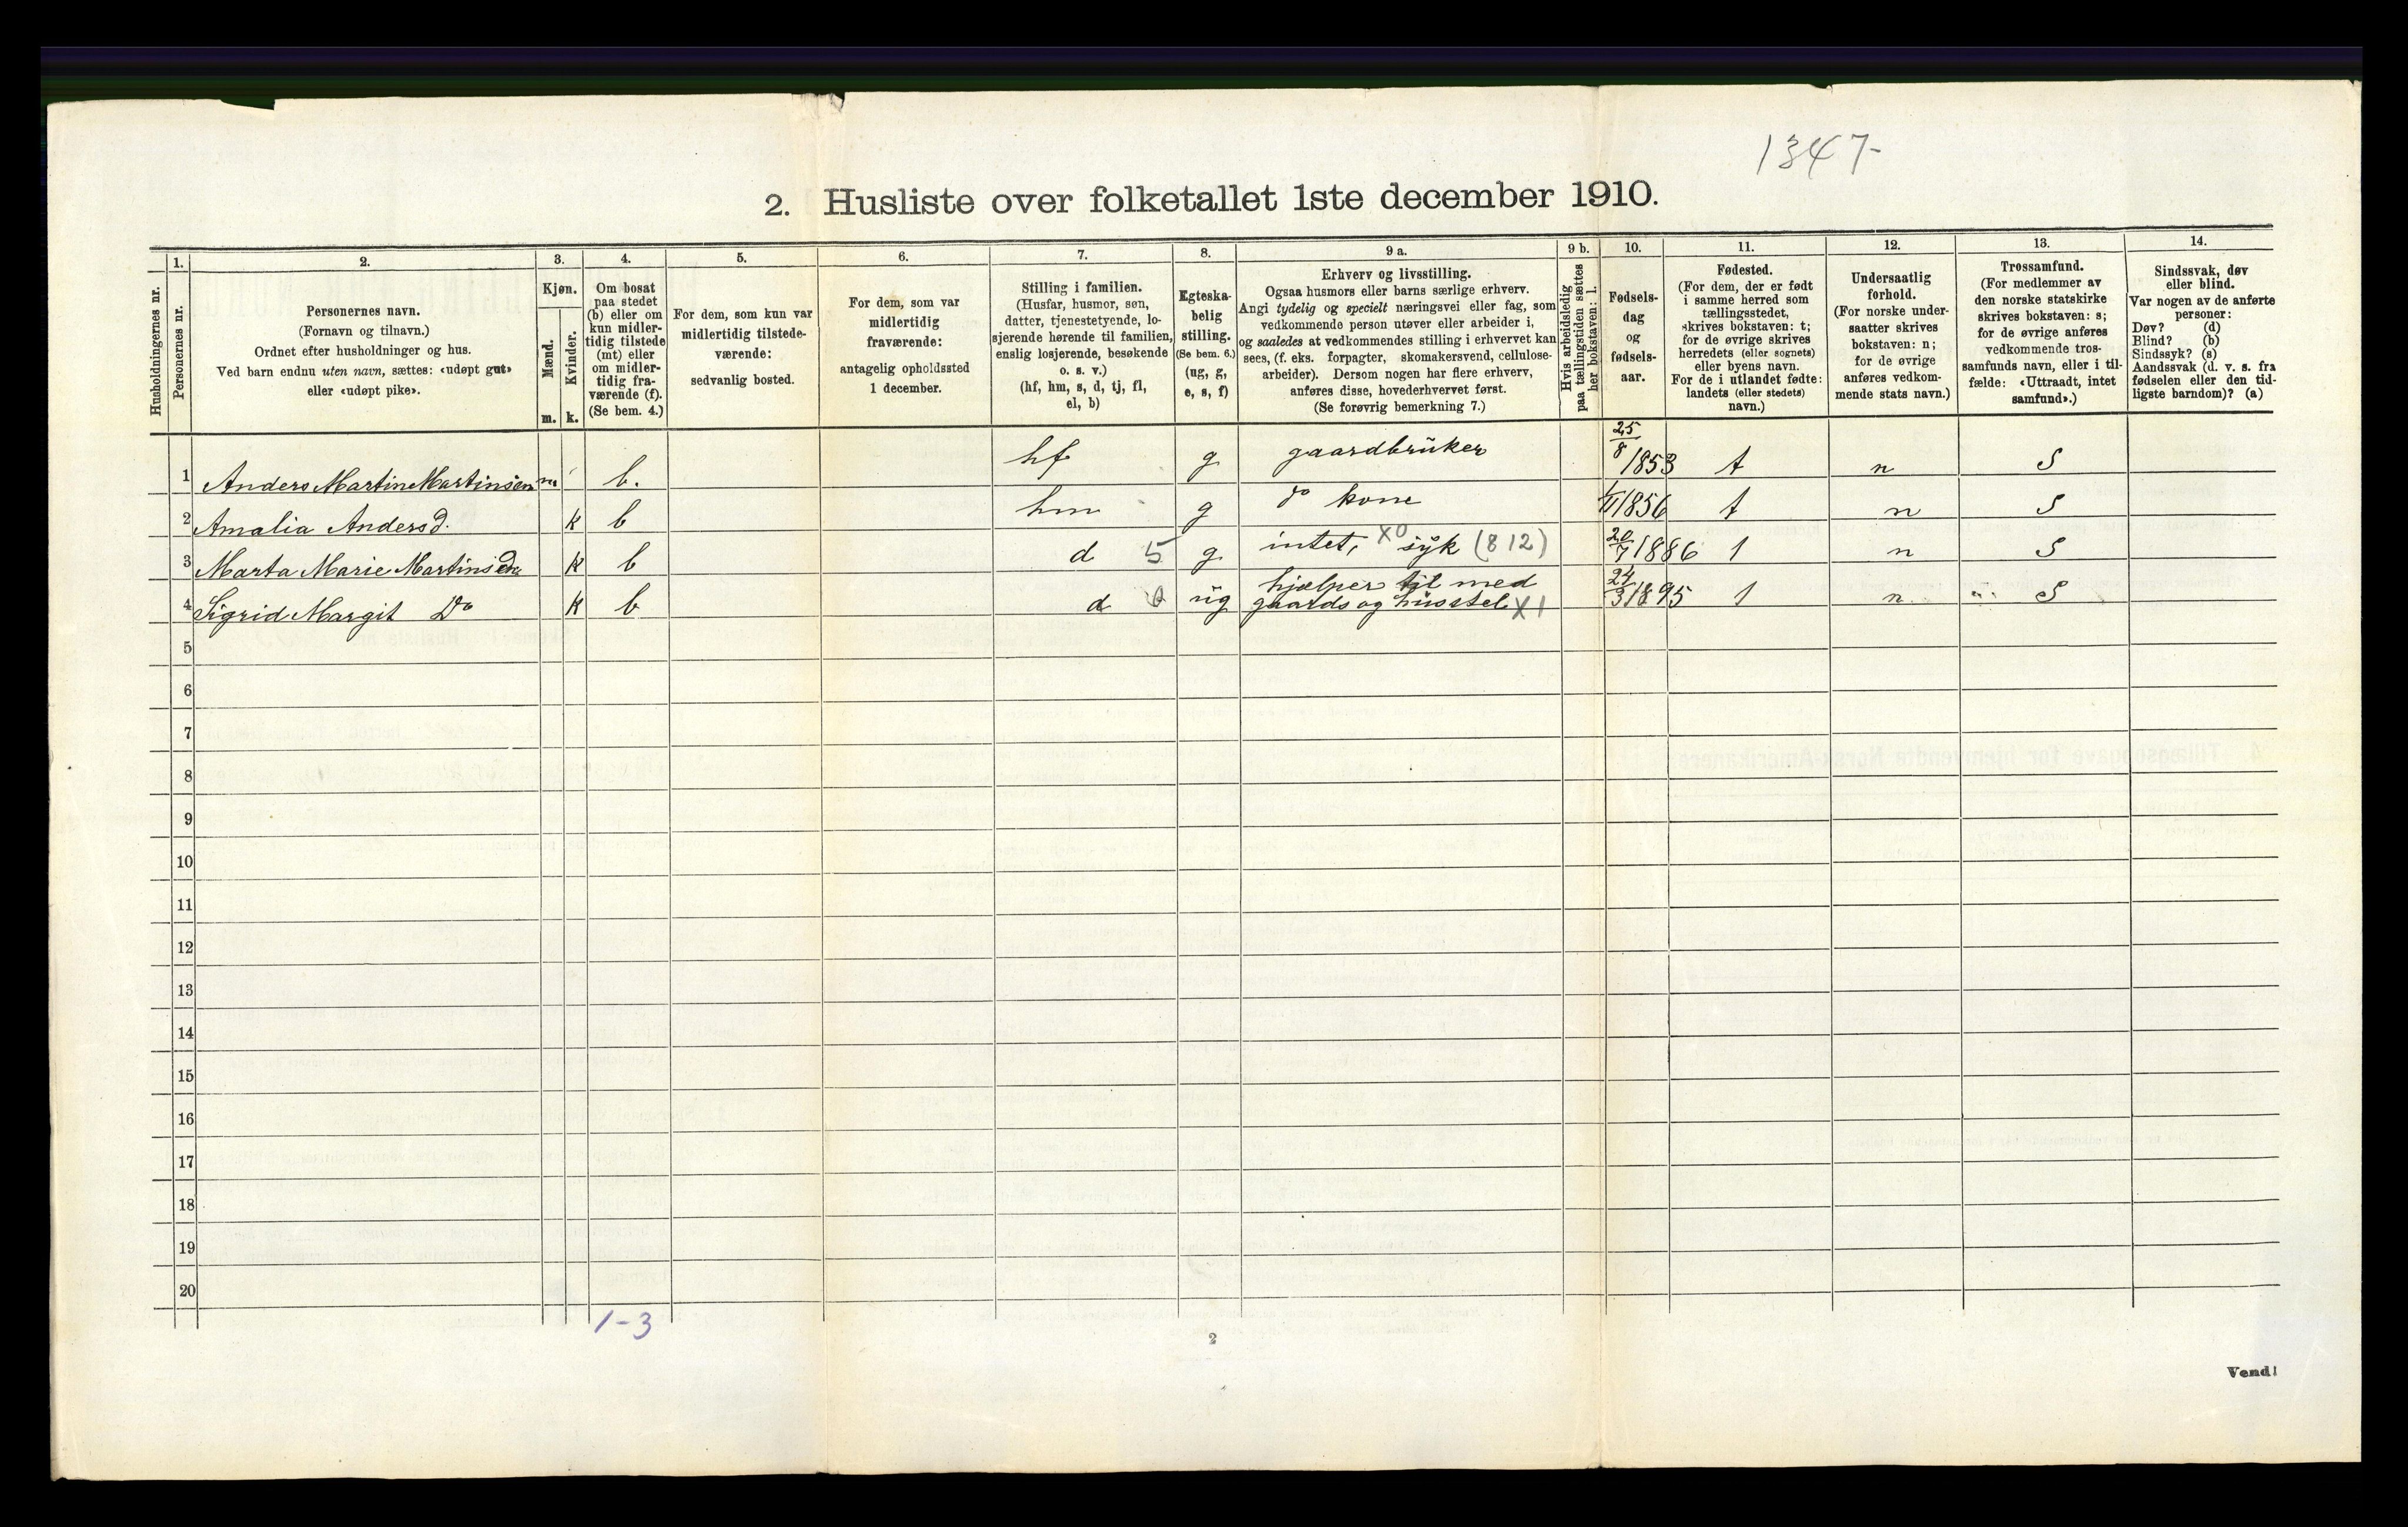 1347-
2. Husliste over folketallet 1ste december 1910.
Husholdningernes nr.
1.
Personernes nr.
2.
Personernes navn.
(Fornavn og tilnavn.)
Ordnet efter husholdninger og hus.
Ved barn endnu uten navn, sættes: «udøpt gut»
eller «udøpt pike».
3.
Kjøn.
Mænd.
m.
Kvinder.
k.
4.
Om bosat
paa stedet
(b) eller om
kun midler-
tidig tilstede
(mt) eller
om midler-
tidig fra-
værende (f).
(Se bem. 4.)
5.
For dem, som kun var
midlertidig tilstede-
værende:
sedvanlig bosted.
6.
For dem, som var
midlertidig
fraværende:
antagelig opholdssted
1 december.
7.
Stilling i familien.
(Husfar, husmor, søn,
datter, tjenestetyende, lo-
sjerende hørende til familien,
enslig losjerende, besøkende
o. s. v.)
(hf, hm, s, d, tj, fl,
el, b)
8.
Egteska-
belig
stilling.
(Se bem. 6.)
(ug, g,
e, s, f)
9 a.
Erhverv og livsstilling.
Ogsaa husmors eller barns særlige erhverv.
Angi tydelig og specielt næringsvei eller fag, som
vedkommende person utøver eller arbeider i,
og saaledes at vedkommendes stilling i erhvervet kan
sees, (f. eks. forpagter, skomakersvend, cellulose-
arbeider). Dersom nogen har flere erhverv,
anføres disse, hovederhvervet først.
(Se forøvrig bemerkning 7.)
9 b.
Hvis arbeidsledig
paa tællingstiden sættes
her bokstaven: l.
10.
Fødsels-
dag
og
fødsels-
aar.
11.
Fødested.
(For dem, der er født
i samme herred som
tællingsstedet,
skrives bokstaven: t;
for de øvrige skrives
herredets (eller sognets)
eller byens navn.
For de i utlandet fødte:
landets (eller stedets)
navn.)
12.
Undersaatlig
forhold.
(For norske under-
saatter skrives
bokstaven: n;
for de øvrige
anføres vedkom-
mende stats navn.)
13.
Trossamfund.
(For medlemmer av
den norske statskirke
skrives bokstaven: s;
for de øvrige anføres
vedkommende tros-
samfunds navn, eller i til-
fælde: «Uttraadt, intet
samfund».)
14.
Sindssvak, døv
eller blind.
Var nogen av de anførte
personer:
Døv? (d)
Blind? (b)
Sindssyk? (s)
Aandssvak (d. v. s. fra
fødselen eller den tid-
ligste barndom)? (a)
1 Anders Martin Martinsen m b. hf g gaardbruker 25/8 1853 t n S
2 Amalia Andersd. k b hm g do kone 1856 t n S
3 Marta Marie Martinsen k b d 5 g intet, x0 syk (812) 20/7 1886 t n S
4 Sigrid Margit Do k b d ug hjælper til med
gaards og husstel X1 24/3 1895 t n S
5
6
7
8
9
10
11
12
13
14
15
16
17
18
19
20
1-3
2
Vend!